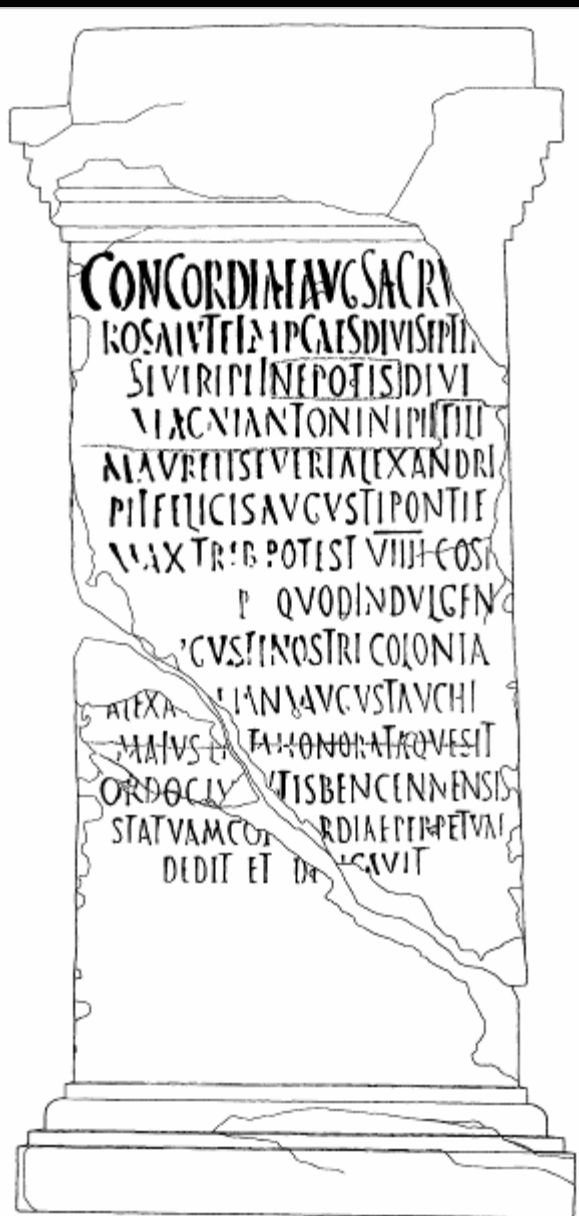 CONCORDIAE AVG SACRV
RO SALVTE IMP CAES DIVI SEPTI
SEVERI PII NEPOTIS DIVI
MAGNI ANTONINI PII FILI
M AVRELII SEVERI ALEXANDRI
PII FELICIS AVGVSTI PONTIF
MAX TRIB POTEST VIIII COS
P QVOD INDVLGEN
GVSTI NOSTRI COLONIA
ALEXA IANA AVGVSTA VCHI
MAIVS TA HONORATAQVE SIT
ORDO CIV TIS BENCENNENSIS
STATVAM CO RDIAE PERPETVAE
DEDIT ET DE ICAVIT